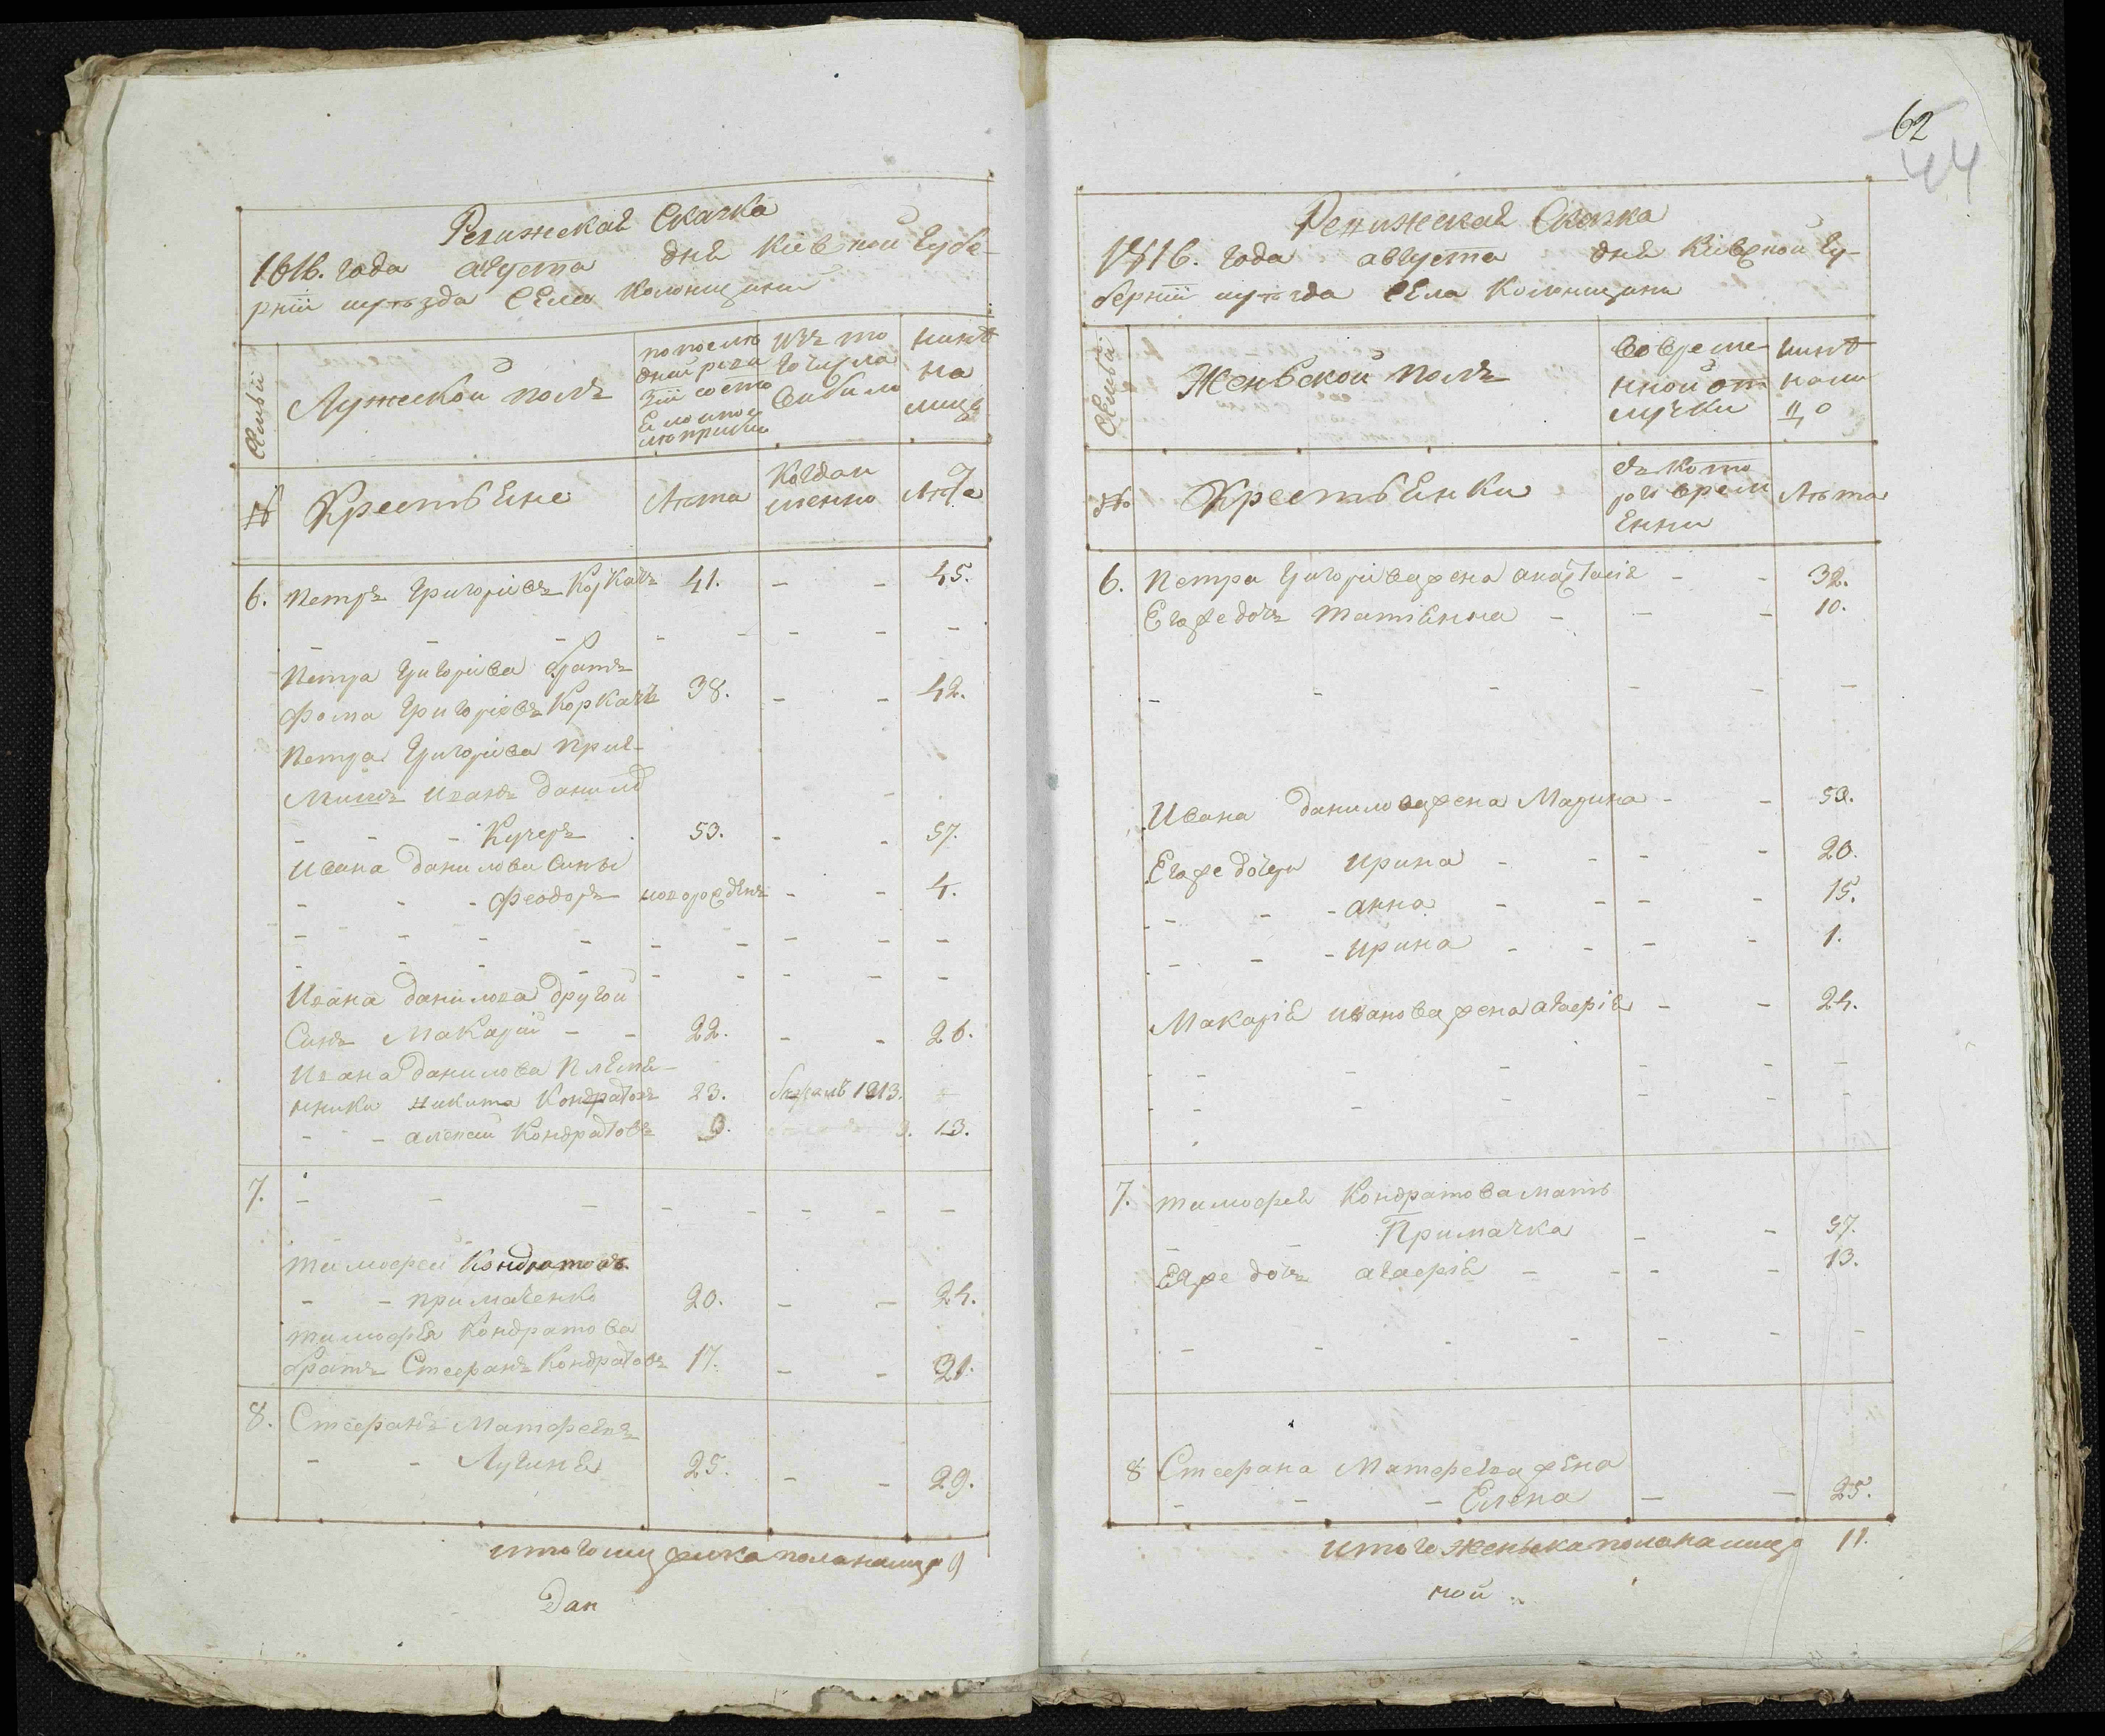 Ревижская Скачка
1816. года августа дня Киевской Губе-
рнии уезда Села Колонщини
Семьи
Мужеской полъ
по после
дней реви
зии состо
яло и после прибыло
изъ то
го числа
выбыло
нинѣ
на
лицо
№
Крестьяне
Лѣта
Когда и
менно
Лѣта
6. Петръ Григоріевъ Коркачъ 41. - - 45.
Петра Григоріева братъ
Фома Григоріевъ Коркачъ 38. - - 42.
Петра Григоріева прий-
мишъ Иванъ Данилов
- - - Кучеръ 53. - - 57.
Ивана Данилова сины
- - - Феодоръ новорожденъ - - 4.
Ивана Данилова другой
Синъ Макарій - - 22. - - 26.
Ивана Данилова Племя-
нники Никита Кондратовъ 23. бежалъ 1813.
- - - Алексій Кондратовъ 9. 13.
7.
Тимофей Кондратовъ
- - Примаченко 20. - - 24.
Тимофея Кондратова
братъ Стефанъ Кондратовъ 17. - - 21.
8. Стефанъ Матфеевъ
- - Лучина 25. - - 29.
Итого мужеска пола налицо 9
Дан
62
44
Ревижская Скачка
1816. года августа дня Киевской Гу-
берніи уезда Села Колонщини
Семьи
Женьской полъ
во време
нной от
лучки
нинѣ
нали
цо
№
Крестьянки
съ кото
рого врем
енни
Лѣта
6. Петра Григоріева жена Анастасія - - 32.
Его же дочь Татіянна - - - 10.
Ивана Данилова жена Марина - - 52.
Его же дочери Ирина - - - - 20.
- - - Анна - - - - 15.
- - - Ирина - - - - 1.
Макарія Иванова жена Агафія - - 24.
7. Тимофея Кондратова мать
- - Примачка - - 57.
Ея же дочь Агафія - - - - 13.
8 Стефана Матфеева жена
- - - Елена - - 25.
Итого женьска пола налицо 11.
ной